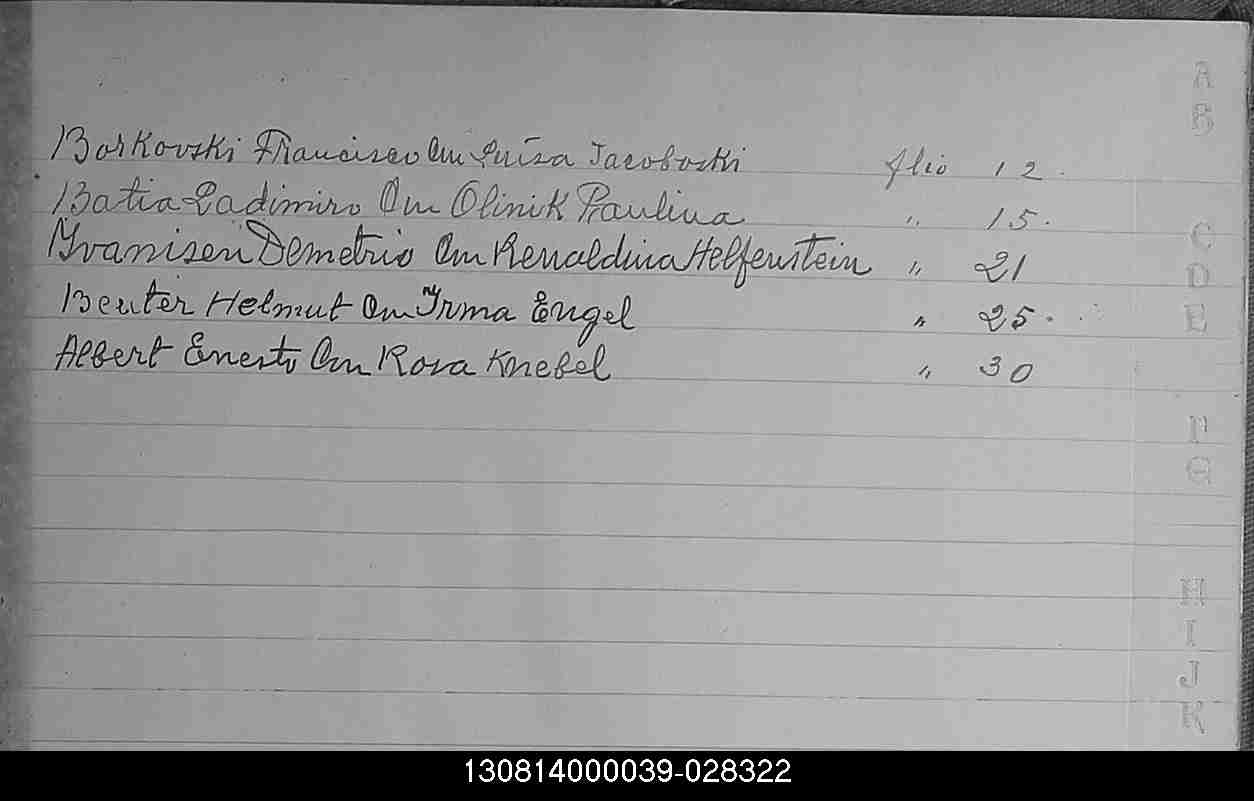 Borkovski Francisco Cm Luiza Jacoboski flio 12.
Batia Ladimiro Cm Olinik Paulina " 15.
Yvanisen Demetrio Cm Renaldina Helfenstein " 21
Beuter Helmut Cm Yrma Engel " 25.
Albert Ernesto Cm Rosa Knebel " 30
A
B
C
D
E
F
G
H
I
J
K
130814000039-028322